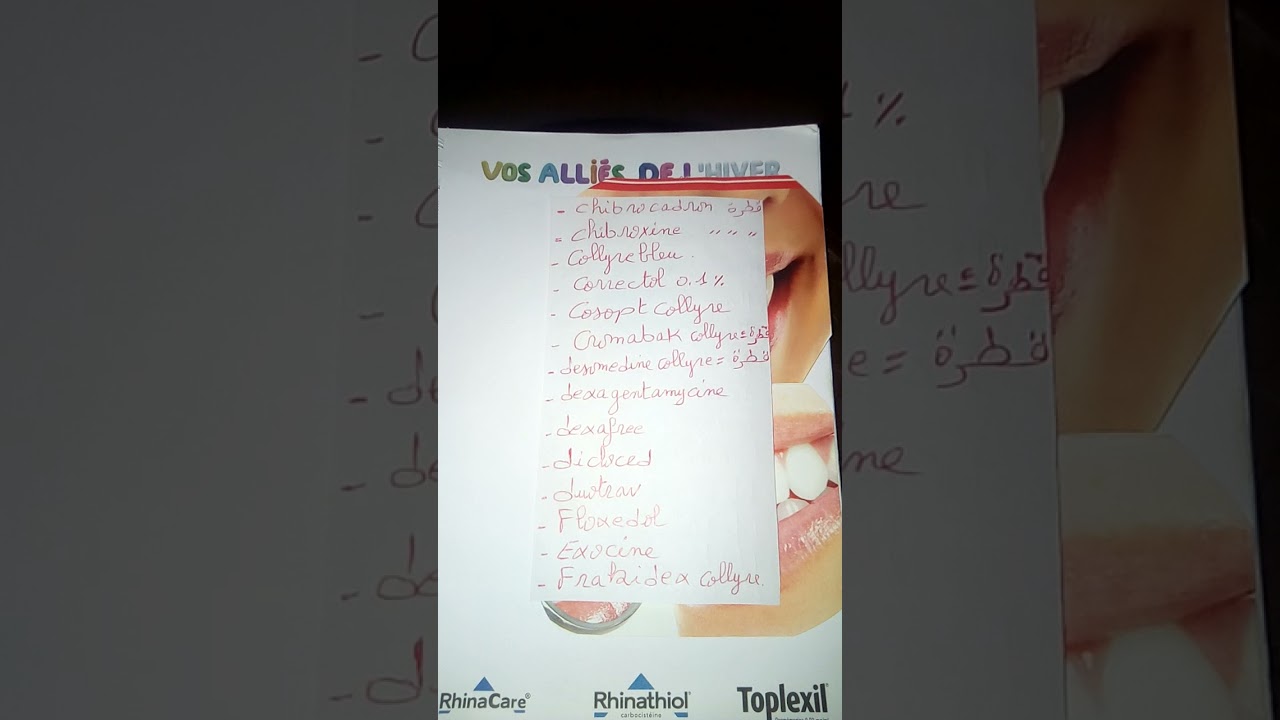 VOS ALLIÉS DE L'HIVER
- chibrocadron قطرة
= chibroxine " " "
- Collyre bleu.
- Correctol 0.1%
- Cosopt collyre
- Cromabak collyre = قطرة
- desomedine collyre = قطرة
- dexagentamycine
- dexafree
- dicloced
- duotrav
- Floxedol
- Exocine
- Frakidex collyre.
RhinaCare® Rhinathiol® Toplexil®
carbocistéine